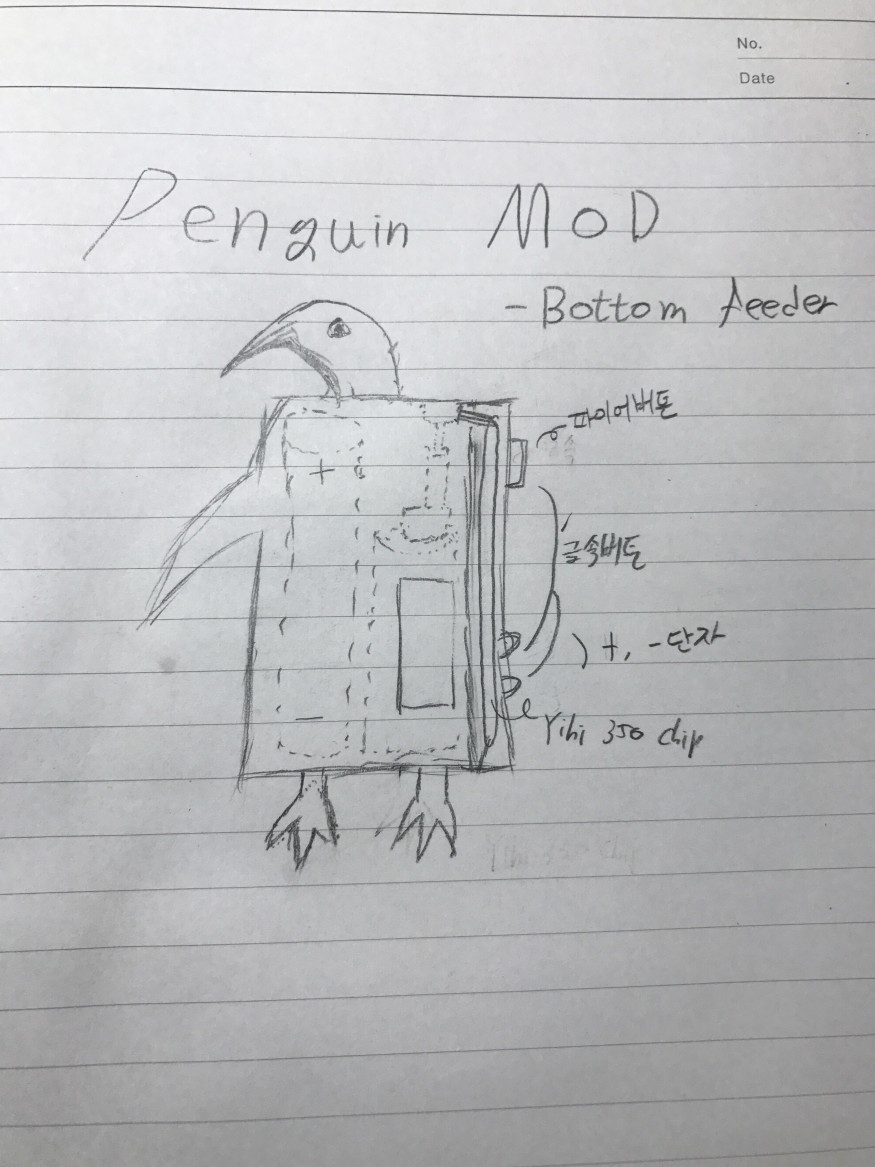 No.
Date
Penguin MOD
- Bottom feeder
파이어버튼
+
금속버튼
+, -단자
-
Yihi 350 chip